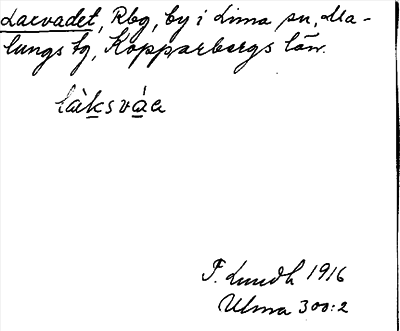 Laxvadet, Rbg, by i Lima sn, Ma-
lungs tg, Kopparbergs län.
làksváa
F. Lundh 1916
Ulma 300:2